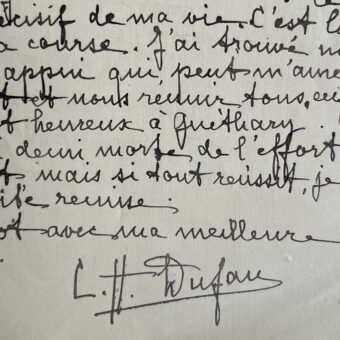 écisif de ma vie. C'est l
a course. J'ai trouvé
appui qui peut m'ame
et nous réunir tous,
t heureux à Guéthary
demi morte de l'effort
t mais si tout réussit, je
remise.
ot avec ma meilleure
C.H. Dufau